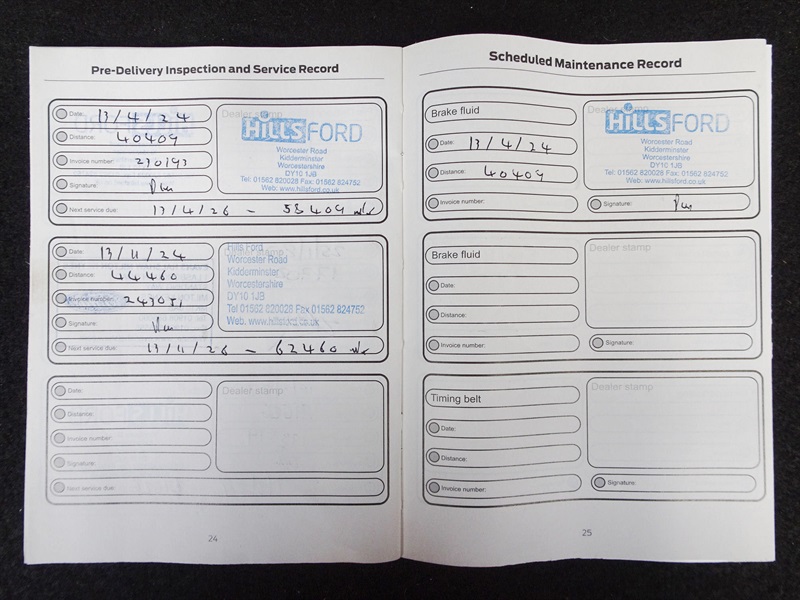 Pre-Delivery Inspection and Service Record
Date: 13/4/24
Distance: 40409
Invoice number: 230193
Signature:
Next service due: 13/4/26 - 58409
Dealer stamp
HILLS FORD
Worcester Road
Kidderminster
Worcestershire
DY10 1JB
Tel: 01562 820028 Fax: 01562 824752
Web: www.hillsford.co.uk
Date: 13/11/24
Distance: 44460
Invoice number: 243051
Signature:
Next service due: 13/11/26 - 62460
Dealer stamp
Hills Ford
Worcester Road
Kidderminster
Worcestershire
DY10 1JB
Tel 01562 820028 Fax 01562 824752
Web. www.hillsford.co.uk
Date:
Distance:
Invoice number:
Signature:
Next service due:
Dealer stamp
24
Scheduled Maintenance Record
Brake fluid
Date: 13/4/24
Distance: 40409
Invoice number:
Dealer stamp
HILLS FORD
Worcester Road
Kidderminster
Worcestershire
DY10 1JB
Tel: 01562 820028 Fax: 01562 824752
Web: www.hillsford.co.uk
Signature:
Brake fluid
Date:
Distance:
Invoice number:
Dealer stamp
Signature:
Timing belt
Date:
Distance:
Invoice number:
Dealer stamp
Signature:
25